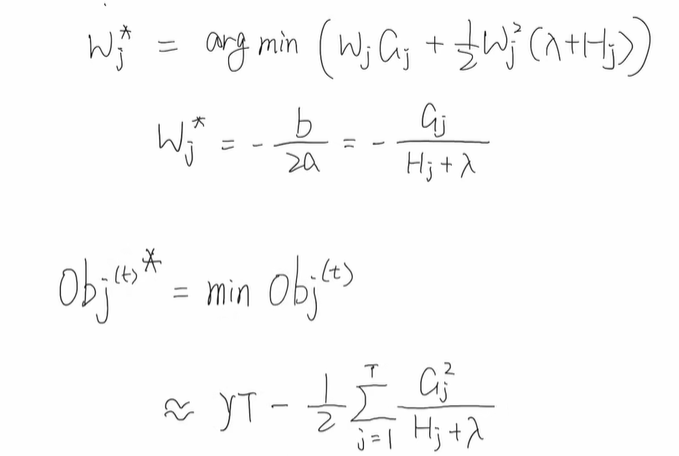 W_j^* = arg min (W_j G_j + 1/2 W_j^2 (λ+H_j))
W_j^* = - b/2a = - G_j/(H_j + λ)
Obj^(t)* = min Obj^(t)
≈ γT - 1/2 ∑_{j=1}^{T} G_j^2/(H_j + λ)